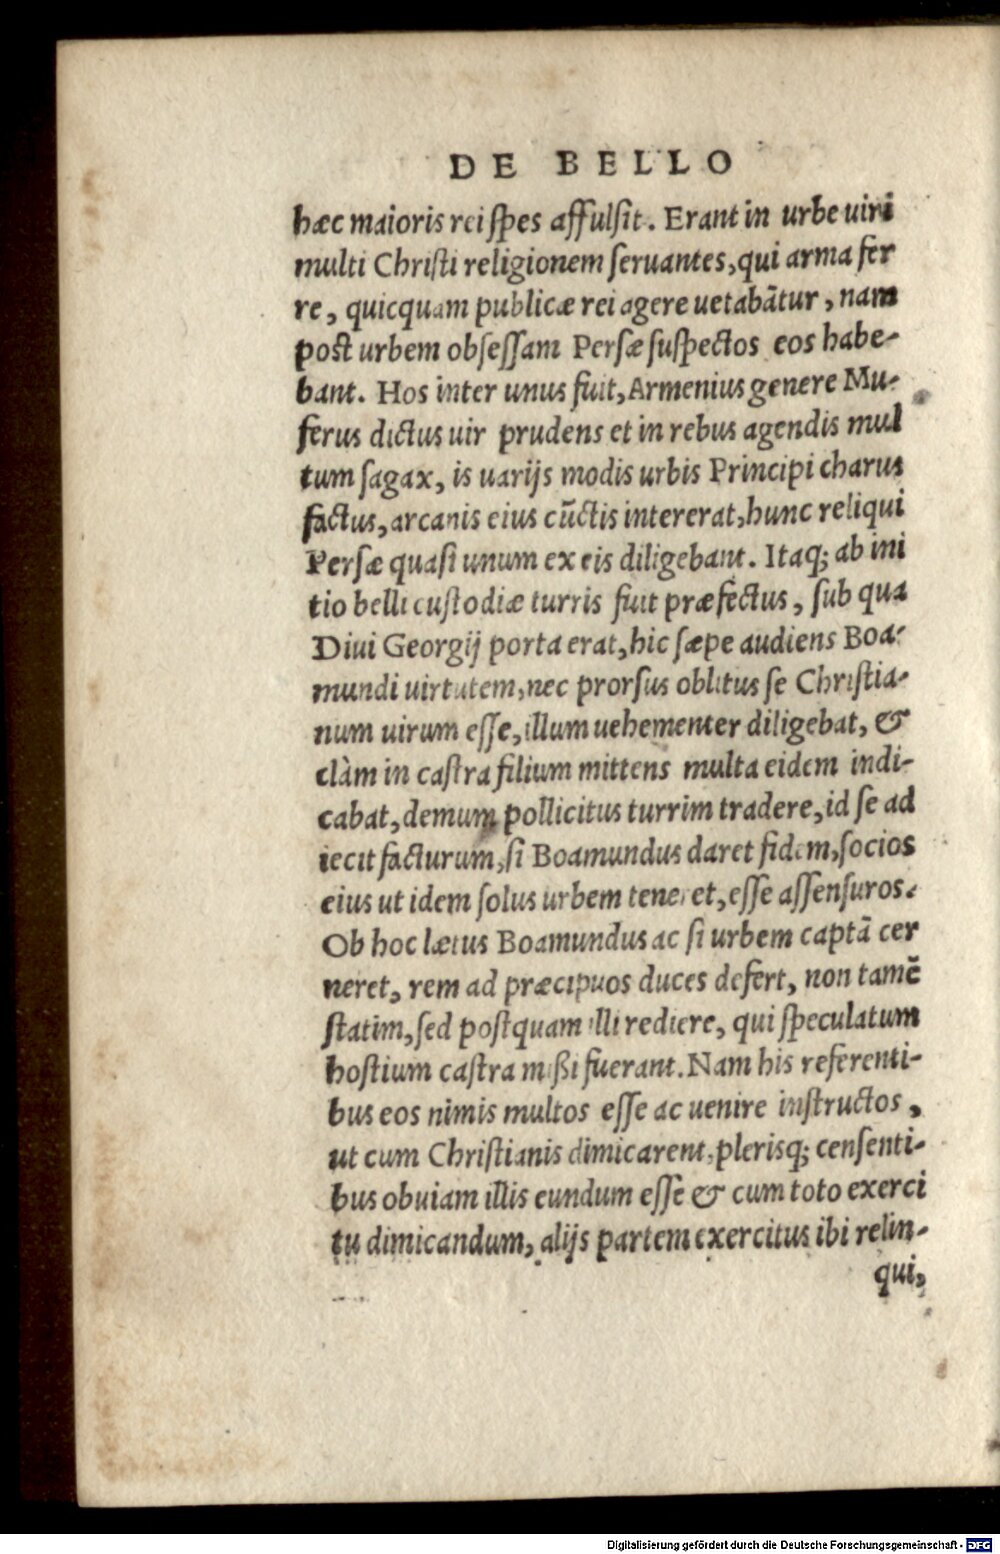 DE BELLO
hæc maioris rei spes affulsit. Erant in urbe uiri
multi Christi religionem seruantes, qui arma fer
re, quicquam publicæ rei agere uetabātur, nam
post urbem obsessam Persæ suspectos eos habe-
bant. Hos inter unus fuit, Armenius genere Mu-
ferus dictus uir prudens et in rebus agendis mul
tum sagax, is uarijs modis urbis Principi charus
factus, arcanis eius cūctis intererat, hunc reliqui
Persæ quasi unum ex eis diligebant. Itaq; ab ini
tio belli custodiæ turris fuit præfectus, sub qua
Diui Georgij porta erat, hic sæpe audiens Boa-
mundi uirtutem, nec prorsus oblitus se Christia-
num uirum esse, illum uehementer diligebat, &
clàm in castra filium mittens multa eidem indi-
cabat, demum pollicitus turrim tradere, id se ad
iecit facturum, si Boamundus daret fidem, socios
eius ut idem solus urbem teneret, esse assensuros.
Ob hoc lætus Boamundus ac si urbem captā cer
neret, rem ad præcipuos duces defert, non tamē
statim, sed postquam illi rediere, qui speculatum
hostium castra mißi fuerant. Nam his referenti-
bus eos nimis multos esse ac uenire instructos,
ut cum Christianis dimicarent, plerisq; censenti-
bus obuiam illis eundum esse & cum toto exerci
tu dimicandum, alijs partem exercitus ibi relin-
qui,
Digitalisierung gefördert durch die Deutsche Forschungsgemeinschaft - DFG